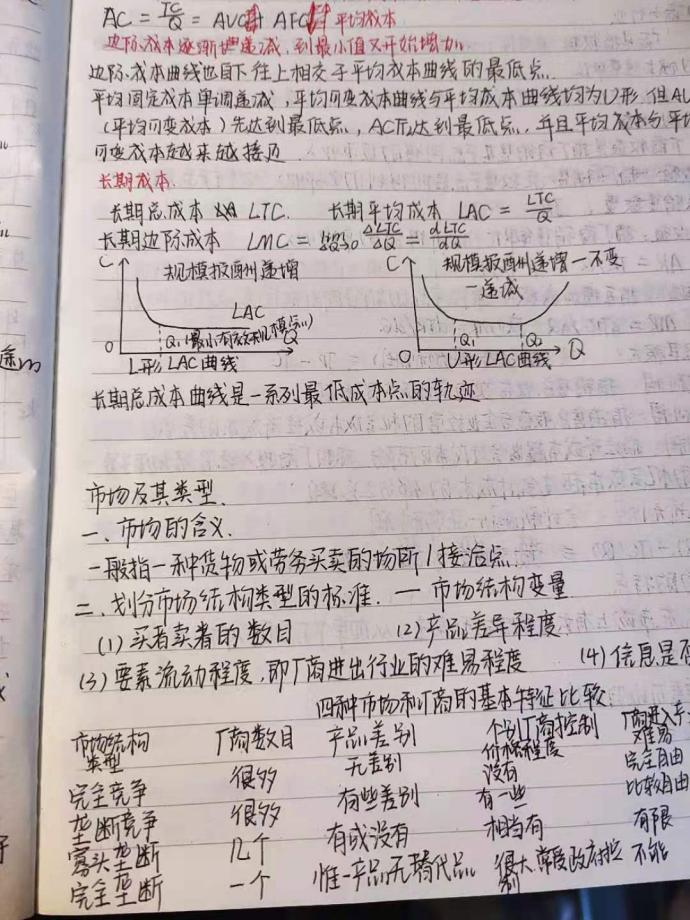 AC = TC/Q = AVC + AFC 平均成本
边际成本逐渐递减,到最小值又开始增加
边际成本曲线也自下往上相交于平均成本曲线的最低点
平均固定成本单调递减,平均可变成本曲线与平均成本曲线均为U形.但AV
(平均可变成本)先达到最低点,AC后达到最低点,并且平均成本与平均
可变成本越来越接近
长期成本
长期总成本 LTC. 长期平均成本 LAC = LTC/Q
长期边际成本 LMC = lim ΔQ→0 ΔLTC/ΔQ = dLTC/dQ
C 规模报酬递增
LAC
Q₁(最小有效规模点)
O Q
L形LAC曲线
C 规模报酬递增一不变
一递减
Q₁ Q₂
O Q
U形LAC曲线
长期总成本曲线是一系列最低成本点的轨迹
市场及其类型.
一、市场的含义.
一般指一种货物或劳务买卖的场所/接洽点.
二、划分市场结构类型的标准. — 市场结构变量
(1) 买者卖者的数目 (2) 产品差异程度
(3) 要素流动程度,即厂商进出行业的难易程度 (4) 信息是否
四种市场和厂商的基本特征比较
市场结构类型 厂商数目 产品差别 个别厂商控制价格程度 厂商进入产 难易
完全竞争 很多 无差别 没有 完全自由
垄断竞争 很多 有些差别 有一些 比较自由
寡头垄断 几个 有或没有 相当有 有限
完全垄断 一个 惟一产品无替代品 很大.常受政府控制 不能